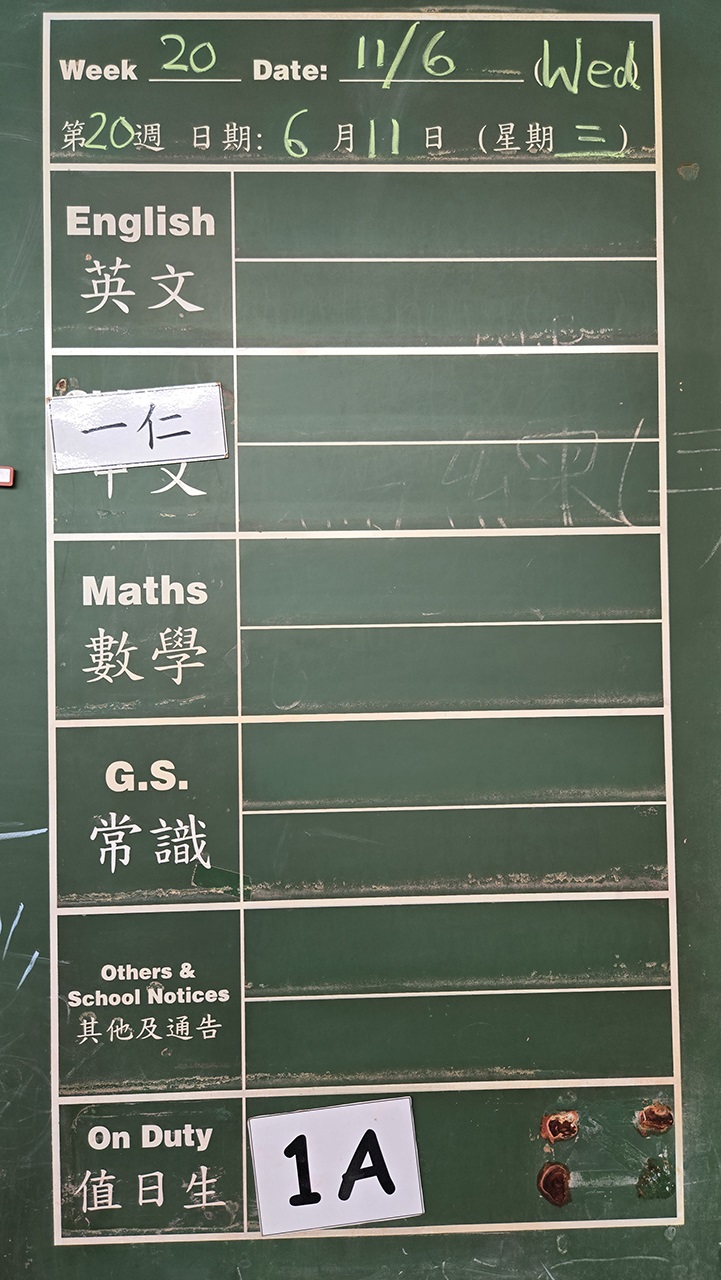 Week 20 Date: 11/6 (Wed)
第20週 日期: 6月11日 (星期二)
English
英文
一仁
中文
Maths
數學
G.S.
常識
Others &
School Notices
其他及通告
On Duty
值日生
1A